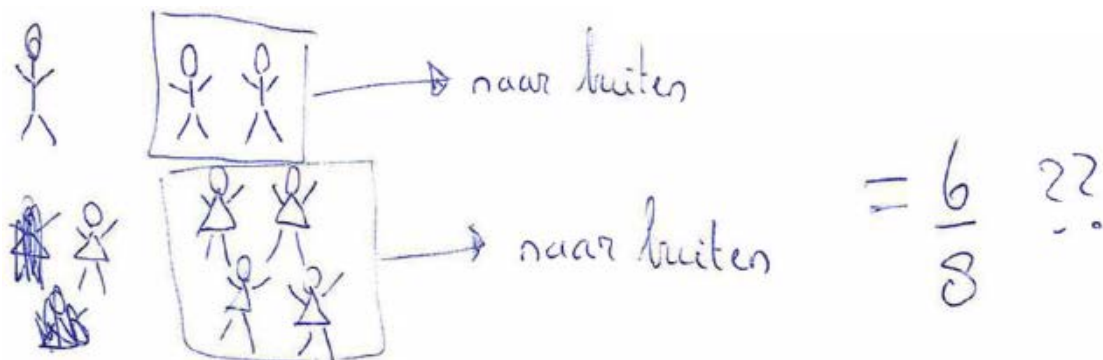 naar buiten
naar buiten
= 6/8 ??